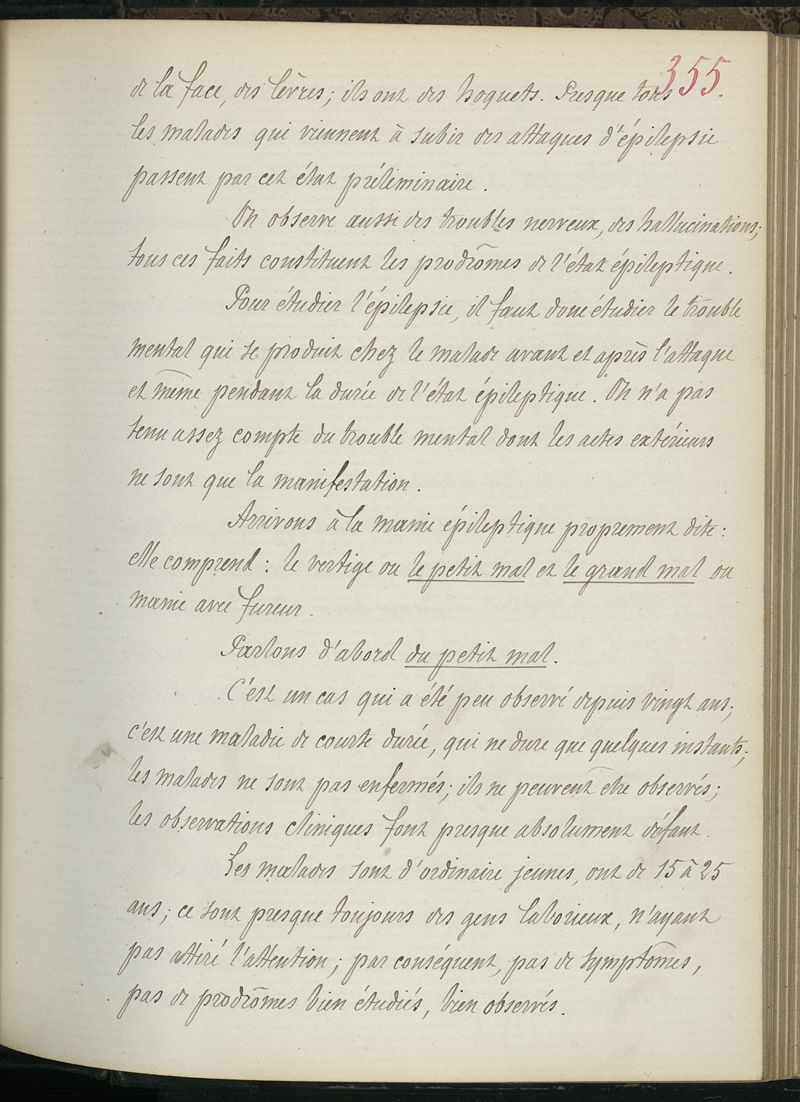 355.
de la face, des lèvres; ils ont des hoquets. Presque tous
les malades qui viennent à subir des attaques d'épilepsie
passent par cet état préliminaire.
On observe aussi des troubles nerveux, des hallucinations;
tous ces faits constituent les prodrômes de l'état épileptique.
Pour étudier l'épilepsie, il faut donc étudier le trouble
mental qui se produit chez le malade avant et après l'attaque
et même pendant la durée de l'état épileptique. On n'a pas
tenu assez compte du trouble mental dont les actes extérieurs
ne sont que la manifestation.
Arrivons à la manie épileptique proprement dite:
elle comprend: le vertige ou le petit mal et le grand mal ou
manie avec fureur.
Parlons d'abord du petit mal.
C'est un cas qui a été peu observé depuis vingt ans;
c'est une maladie de courte durée, qui ne dure que quelques instants;
les malades ne sont pas enfermés; ils ne peuvent être observés;
les observations cliniques font presque absolument défaut.
Les malades sont d'ordinaire jeunes, ont de 15 à 25
ans; ce sont presque toujours des gens laborieux, n'ayant
pas attiré l'attention; par conséquent, pas de symptômes,
pas de prodrômes bien étudiés, bien observés.